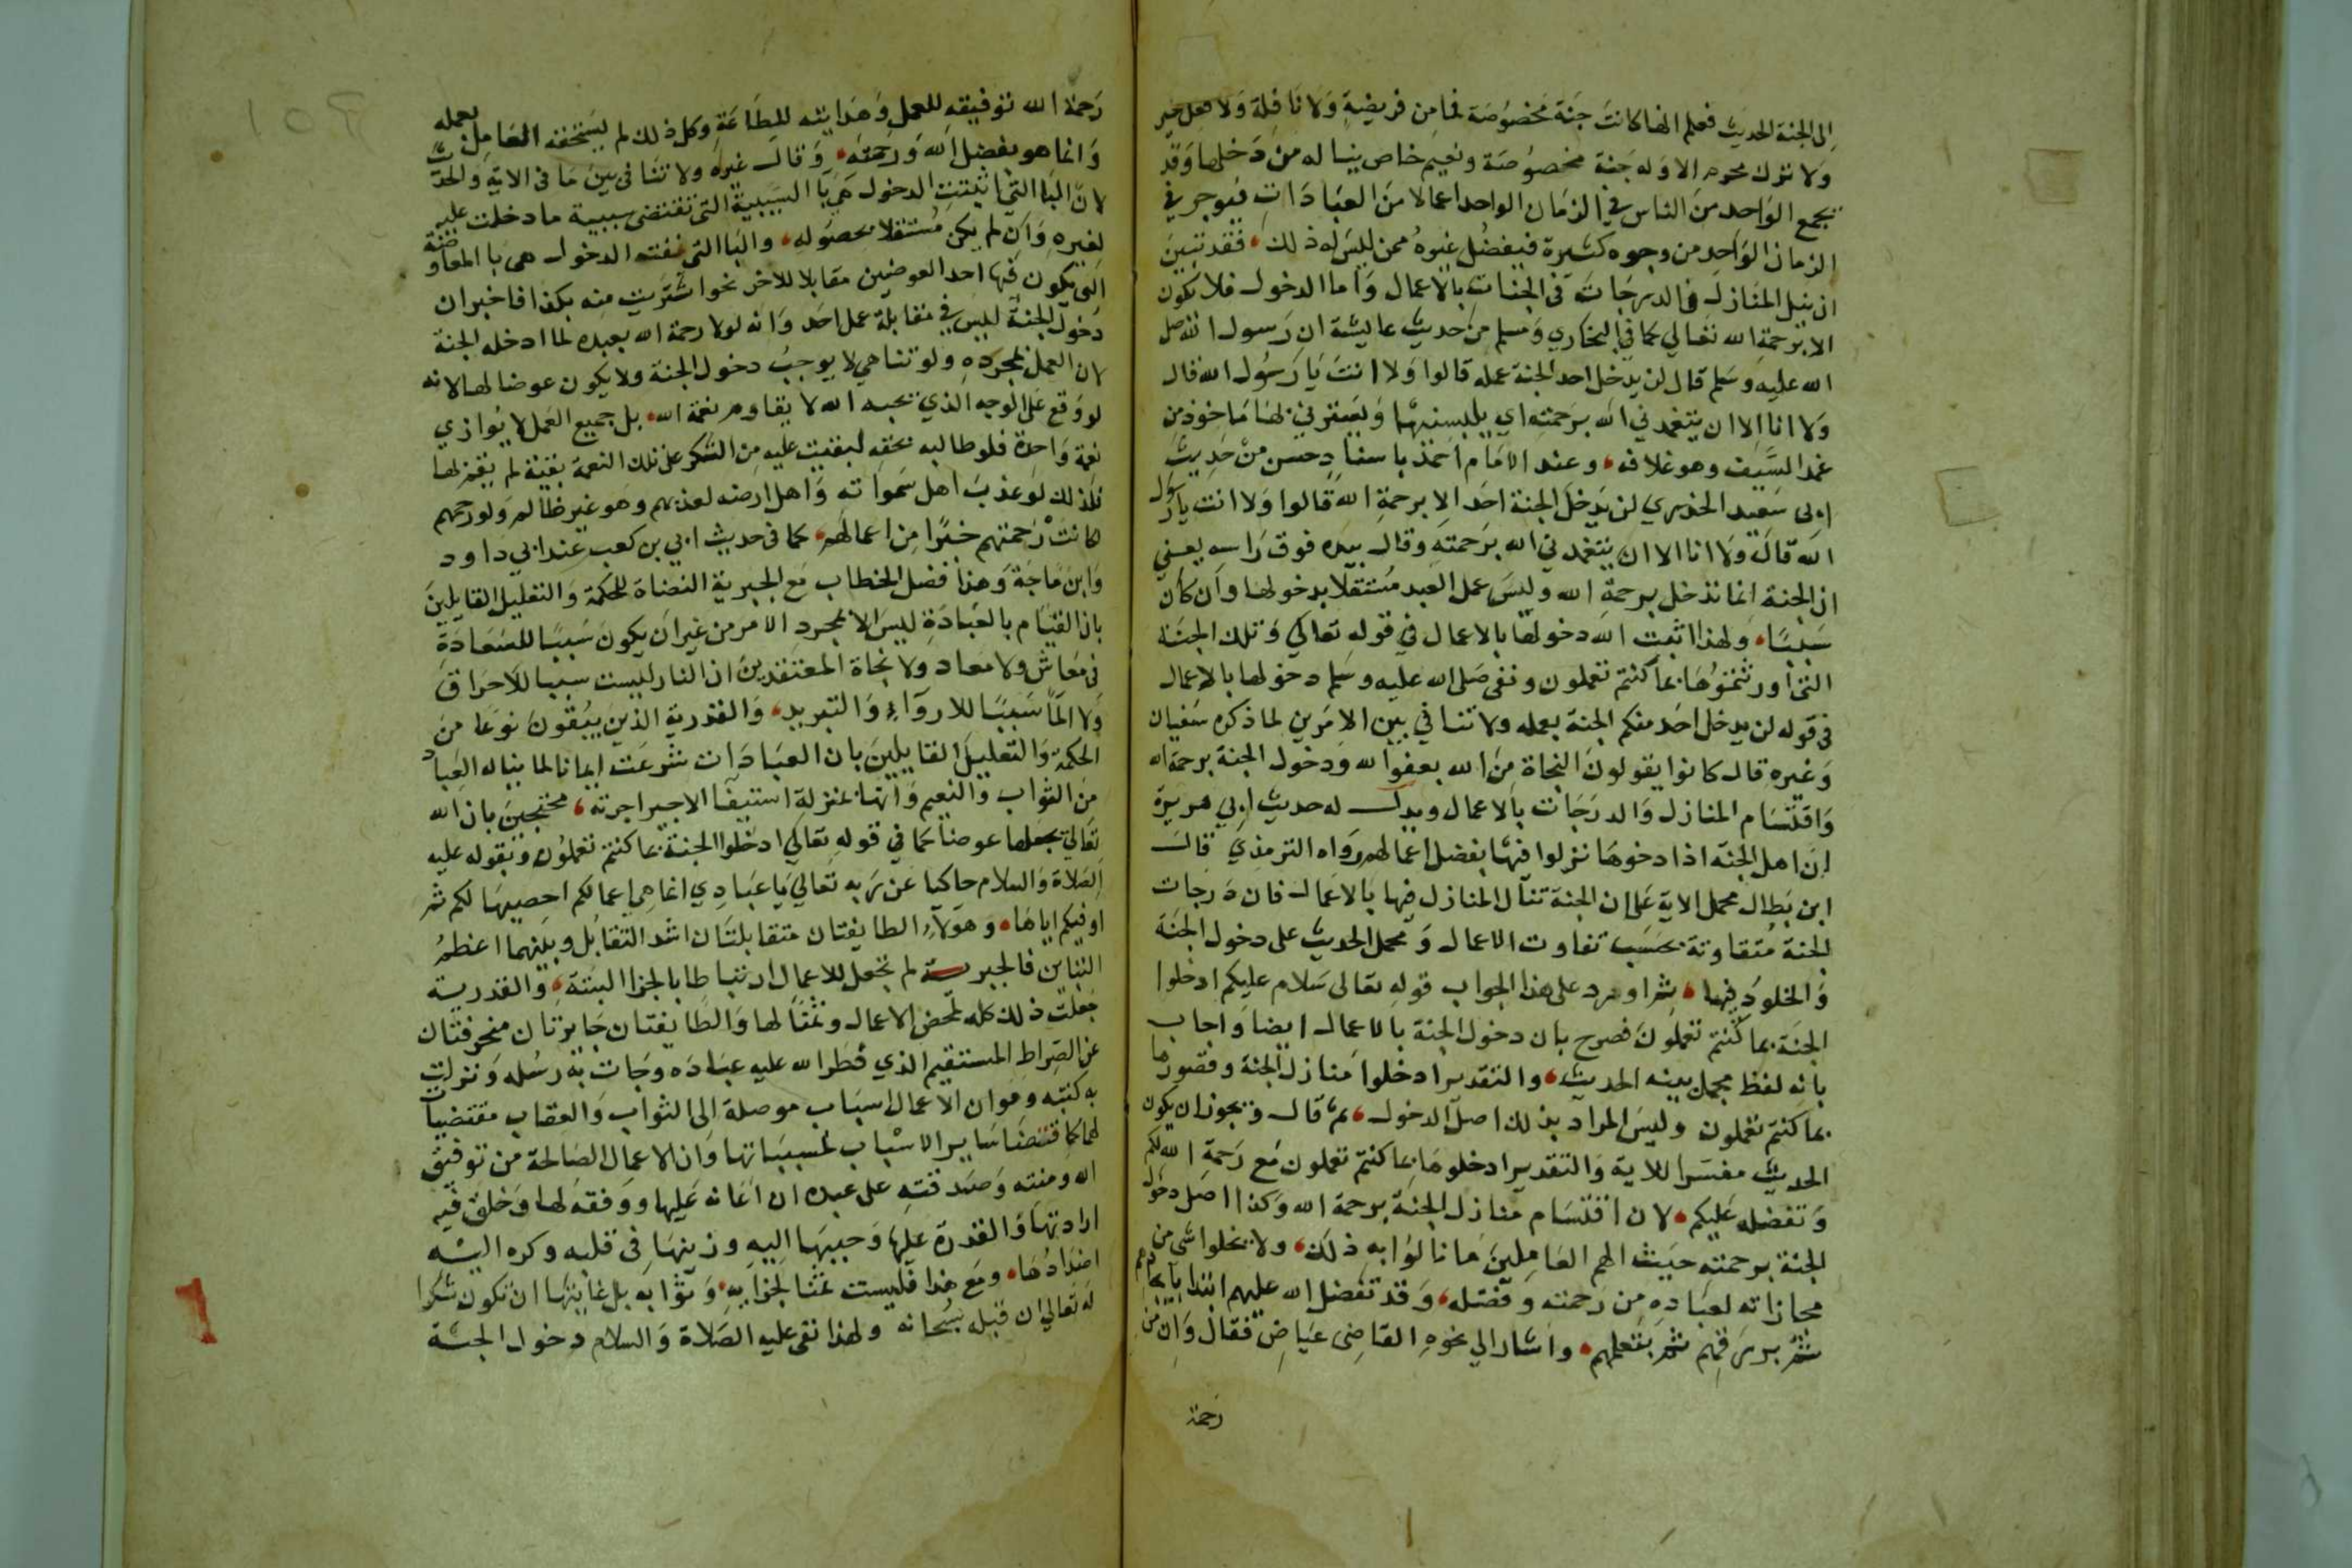 إلى الجنة الحديث فعلم انها كانت جنة مخصوصة فما من فريضة ولا نافلة ولا فعل خير
ولا ترك محرم الا وله جنة مخصوصة ونعيم خاص يناله من دخلها وقد
يجمع الواحد من الناس في الزمان الواحد اعمالا من العبادات فيوجر في
الزمان الواحد من وجوه كثيرة فيفضل غيره ممن ليس له ذلك فقد تبين
ان نيل المنازل والدرجات في الجنات بالاعمال واما الدخول فلا يكون
الا برحمة الله تعالي كما في البخاري ومسلم من حديث عايشة ان رسول الله صلى
الله عليه وسلم قال لن يدخل احد الجنة عمله قالوا ولا انت يا رسول الله قال
ولا انا الا ان يتغمدني الله برحمته اي يلبسنيها ويغمرني بها ماخوذ من
غمد السيف وهو غلافه وعند الامام احمد باسناد حسن من حديث
ابي سعيد الخدري لن يدخل الجنة احد الا برحمة الله قالوا ولا انت يا رسول
الله قال ولا انا الا ان يتغمدني الله برحمته وقال بيده فوق راسه يعني
ان الجنة انما تدخل برحمة الله وليس عمل العبد مستقلا بدخولها وان كان
سببا ولهذا اثبت الله دخولها بالاعمال في قوله تعالى وتلك الجنة
التي اورثتموها بما كنتم تعملون ونفى صلى الله عليه وسلم دخولها بالاعمال
في قوله لن يدخل احد منكم الجنة بعمله ولا تنافي بين الامرين لما ذكره سفيان
وغيره قال كانوا يقولون النجاة من الله بعفو الله ودخول الجنة برحمة الله
واقتسام المنازل والدرجات بالاعمال ويدل له حديث ابي هريرة
ان اهل الجنة اذا دخلوها نزلوا فيها بفضل اعمالهم رواه الترمذي قال
ابن بطال محمل الاية على ان الجنة تنال المنازل فيها بالاعمال فان درجات
الجنة متفاوتة بحسب تفاوت الاعمال ومحمل الحديث على دخول الجنة
والخلود فيها ثم اورد على هذا الجواب قوله تعالى سلام عليكم ادخلوا
الجنة بما كنتم تعملون فصرح بان دخول الجنة بالاعمال ايضا واجاب
بانه لفظ مجمل بينه الحديث والتقدير ادخلوا منازل الجنة وقصورها
بما كنتم تعملون وليس المراد بذلك اصل الدخول ثم قال ويجوز ان يكون
الحديث مفسرا للاية والتقدير ادخلوها بما كنتم تعملون مع رحمة الله لكم
وتفضله عليكم لان اقتسام منازل الجنة برحمة الله وكذا اصل دخول
الجنة برحمته حيث الهم العاملين ما نالوا به ذلك ولا يخلوا شي من
مجازاته لعباده من رحمته وفضله وقد تفضل الله عليهم ابتدا بايجادهم
ثم برزقهم ثم بتعلمهم واشار الي نحوه القاضي عياض فقال وان من
رحمة
رحمة الله توفيقه للعمل وهدايته للطاعة وكل ذلك لم يستحقه العامل بعمله
وانما هو بفضل الله ورحمته وقال غيره ولا تنافي بين ما في الاية والحديث
لان البا التي اثبتت الدخول هي با السببية التي تقتضي سببية ما دخلت عليه
لغيره وان لم يكن مستقلا بحصوله والبا التي نفت الدخول هي با المعاوضة
التي يكون فيها احد العوضين مقابلا للاخر نحو اشتريت منه بكذا فاخبر ان
دخول الجنة ليس في مقابلة عمل احد وانه لولا رحمة الله بعبده لما ادخله الجنة
لان العمل بمجرده ولو تناهي لا يوجب دخول الجنة ولا يكون عوضا لها لانه
لو وقع على الوجه الذي يحبه الله لا يقاوم نعمة الله بل جميع العمل لا يوازي
نعمة واحدة فلو طالبه بحقه لبقيت عليه من الشكر على تلك النعمة بقية لم يقم بها
فلذلك لو عذب اهل سمواته واهل ارضه لعذبهم وهو غير ظالم ولو رحمهم
لكانت رحمتهم خيرا من اعمالهم كما في حديث ابي بن كعب عند ابي داود
وابن ماجة وهذا فصل الخطاب مع الجبرية النفاة للحكمة والتعليل القايلين
بان القيام بالعبادة ليس الا بمجرد الامر من غير ان يكون سببا للسعادة
في معاش ولا معاد ولا نجاة المعتقدين ان النار ليست سببا للاحراق
ولا الما سببا للارواء والتبريد والقدرية الذين يبقون نوعا من
الحكمة والتعليل القايلين بان العبادات شرعت ايمانا لما يناله العباد
من الثواب والنعيم وانها بمنزلة استيفا الاجير اجرته محتجين بان الله
تعالي يجعلها عوضا كما في قوله تعالي ادخلوا الجنة بما كنتم تعملون وبقوله عليه
الصلاة والسلام حاكيا عن ربه تعالي يا عبادي انما هي اعمالكم احصيها لكم ثم
اوفيكم اياها وهولاء الطايفتان متقابلتان اشد التقابل وبينهما اعظم
التباين فالجبرية لم تجعل للاعمال ارتباطا بالجزا البتة والقدرية
جعلت ذلك كله لمحض الاعمال وثمنا لها والطايفتان جايزتان منحرفتان
عن الصراط المستقيم الذي فطر الله عليه عباده وجات به رسله ونزلت
به كتبه وهو ان الاعمال اسباب موصلة الى الثواب والعقاب مقتضيات
لهما كاقتضا ساير الاسباب لمسبباتها وان الاعمال الصالحة من توفيق
الله ومنته وصدقته على عبده ان اعانه عليها ووفقه لها وخلق فيه
ارادتها والقدرة عليها وحببها اليه وزينها في قلبه وكره اليه
اضدادها ومع هذا فليست ثمنا لجزايه وثوابه بل غايتها ان تكون شكرا
له تعالي ان قبله سبحانه ولهذا نفى عليه الصلاة والسلام دخول الجنة